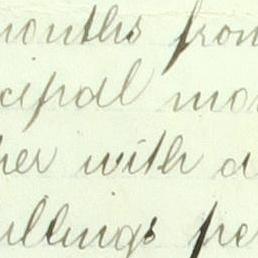 months from
cipal mon
her with a
illings pe